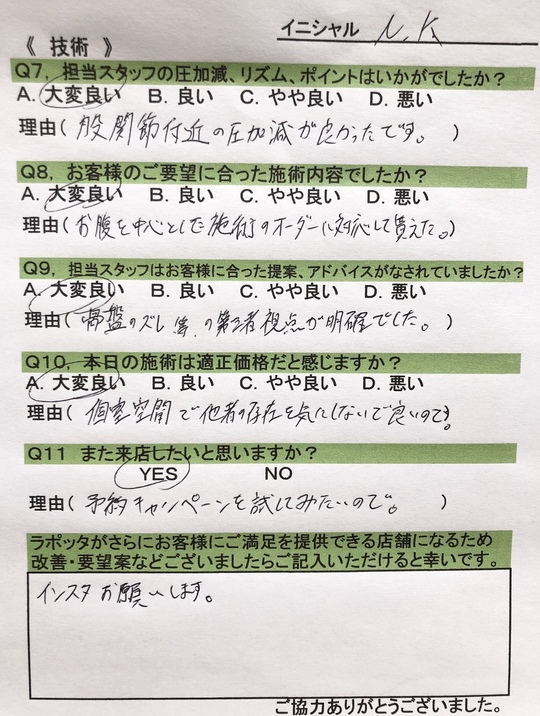 イニシャル N.K
《 技術 》
Q7, 担当スタッフの圧加減、リズム、ポイントはいかがでしたか？
A. 大変良い B. 良い C. やや良い D. 悪い
理由( 股関節付近の圧加減が良かったです。 )
Q8, お客様のご要望に合った施術内容でしたか？
A. 大変良い B. 良い C. やや良い D. 悪い
理由( お腹を中心とした施術のオーダーに対応して貰えた。)
Q9, 担当スタッフはお客様に合った提案、アドバイスがなされていましたか？
A. 大変良い B. 良い C. やや良い D. 悪い
理由( 骨盤のズレ等、の第三者視点が明確でした。 )
Q10, 本日の施術は適正価格だと感じますか？
A. 大変良い B. 良い C. やや良い D. 悪い
理由( 個室空間で他者の存在を気にしないで良いので。
Q11 また来店したいと思いますか？
YES NO
理由( 予約キャンペーンを試してみたいので。 )
ラポッタがさらにお客様にご満足を提供できる店舗になるため
改善・要望案などございましたらご記入いただけると幸いです。
インスタお願いします。
ご協力ありがとうございました。